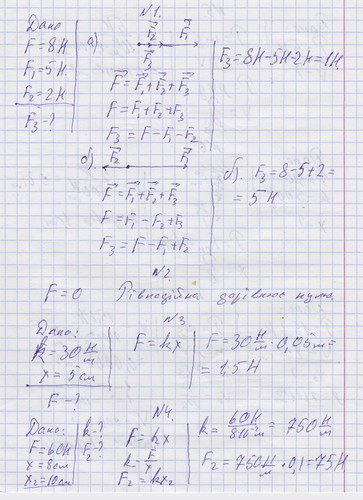 N1.
Дано
F=8Н
F₁=5Н
F₂=2Н
F₃-?
а)
F⃗₂ F⃗₁
F⃗₃
F⃗=F⃗₁+F⃗₂+F⃗₃
F=F₁+F₂+F₃
F₃=F-F₁-F₂
F₃=8Н-5Н-2Н=1Н.
б).
F⃗₂ F⃗₁
F⃗=F⃗₁+F⃗₂+F⃗₃
F=F₁-F₂+F₃
F₃=F-F₁+F₂
б). F₃=8-5+2=
=5Н
N2
F=0 Рівнодійна дорівнює нулю
N3.
Дано:
k=30 Н/м
x=5см
F-?
F=kx
F=30 Н/м · 0,05м=
=1,5Н
N4.
Дано:
F=60Н
x=8см
x₂=10см
k-?
F₂-?
F=kx
k=F/x
F₂=kx₂
k=60Н/8·10⁻²м=750 Н/м
F₂=750 Н/м · 0,1=75Н